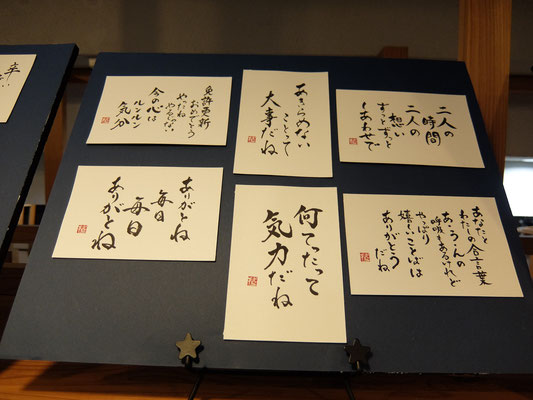 免許更新
おめでとう
やったね
今の心は
ルンルン
気分
あきらめない
ことって
大事だね
二人の
時間
二人の
想い
ずっとずっと
しあわせで
ありがとね
毎日
毎日
ありがとね
何てったって
気力だね
あなたと
わたしの合言葉
あ・うんの
呼吸もあるけれど
やっぱり
嬉しいことばは
ありがとう
だね